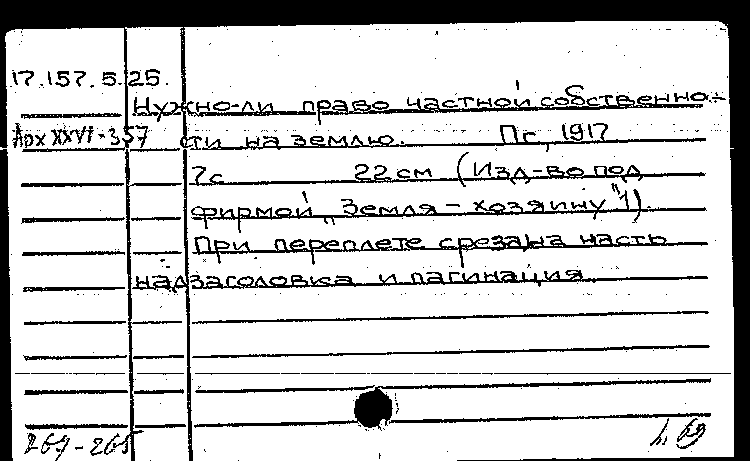 17.157.5.25.
Нужно-ли право частной собственно-
Арх XXVI-357 сти на землю. Пг, 1917
7с 22 см (Изд-во под
фирмой „Земля - хозяину" 1).
При переплете срезана часть
надзаголовка и пагинация.
264-265